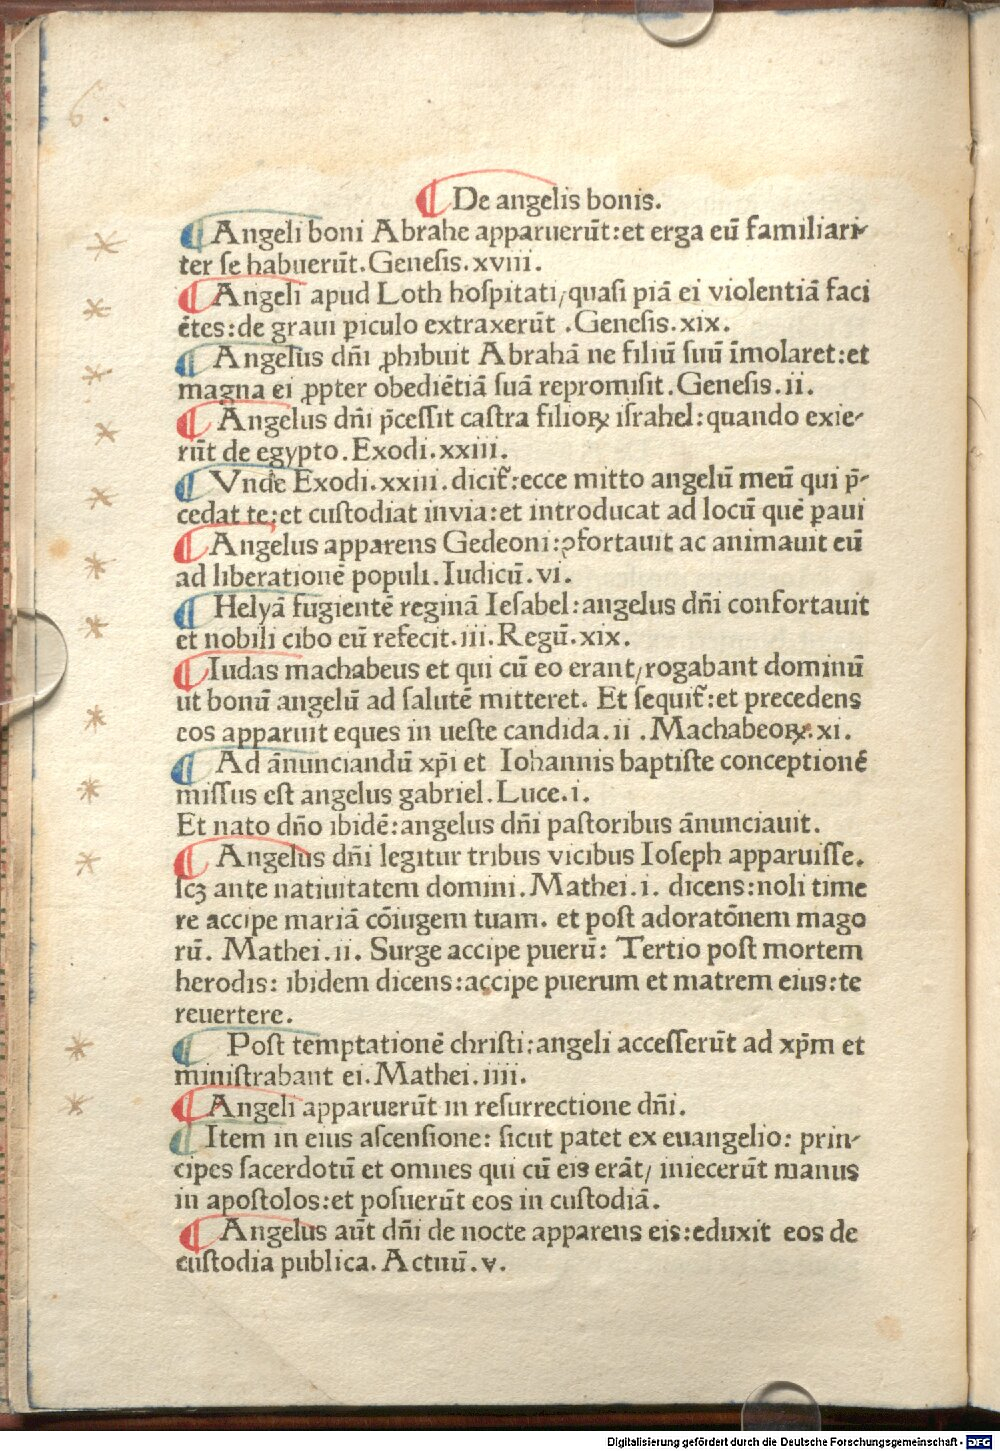 6
¶ De angelis bonis.
¶ Angeli boni Abrahe apparuerūt:et erga eū familiari-
ter se habuerūt.Genesis.xviii.
¶ Angeli apud Loth hospitati/quasi piā ei violentiā faci
ētes:de graui ꝑiculo extraxerūt .Genesis.xix.
¶ Angelus dn̄i ꝓhibuit Abrahā ne filiū suū īmolaret:et
magna ei ꝓpter obediētiā suā repromisit.Genesis.ii.
¶ Angelus dn̄i p̄cessit castra filioꝝ israhel:quando exie-
rūt de egypto.Exodi.xxiii.
¶ Vnde Exodi.xxiii.dicit̄:ecce mitto angelū meū qui p̄-
cedat te:et custodiat invia:et introducat ad locū quē ꝑaui
¶ Angelus apparens Gedeoni:ꝯfortauit ac animauit eū
ad liberationē populi.Iudicū.vi.
¶ Helyā fugientē reginā Iesabel:angelus dn̄i confortauit
et nobili cibo eū refecit.iii.Regū.xix.
¶ Iudas machabeus et qui cū eo erant/rogabant dominū
ut bonū angelū ad salutē mitteret. Et sequit̄:et precedens
eos apparuit eques in ueste candida.ii .Machabeoꝝ.xi.
¶ Ad ānunciandū xp̄i et Iohannis baptiste conceptionē
missus est angelus gabriel.Luce.i.
Et nato dn̄o ibidē:angelus dn̄i pastoribus ānunciauit.
¶ Angelus dn̄i legitur tribus vicibus Ioseph apparuisse.
scꝫ ante natiuitatem domini.Mathei.i. dicens:noli time
re accipe mariā cōiugem tuam. et post adoratōnem mago
rū. Mathei.ii. Surge accipe puerū: Tertio post mortem
herodis: ibidem dicens:accipe puerum et matrem eius:te
reuertere.
¶ Post temptationē christi:angeli accesserūt ad xp̄m et
ministrabant ei.Mathei.iiii.
¶ Angeli apparuerūt in resurrectione dn̄i.
¶ Item in eius ascensione: sicut patet ex euangelio: prin-
cipes sacerdotū et omnes qui cū eis erāt/ iniecerūt manus
in apostolos:et posuerūt eos in custodiā.
¶ Angelus aūt dn̄i de nocte apparens eis:eduxit eos de
custodia publica.Actuū.v.
Digitalisierung gefördert durch die Deutsche Forschungsgemeinschaft - DFG